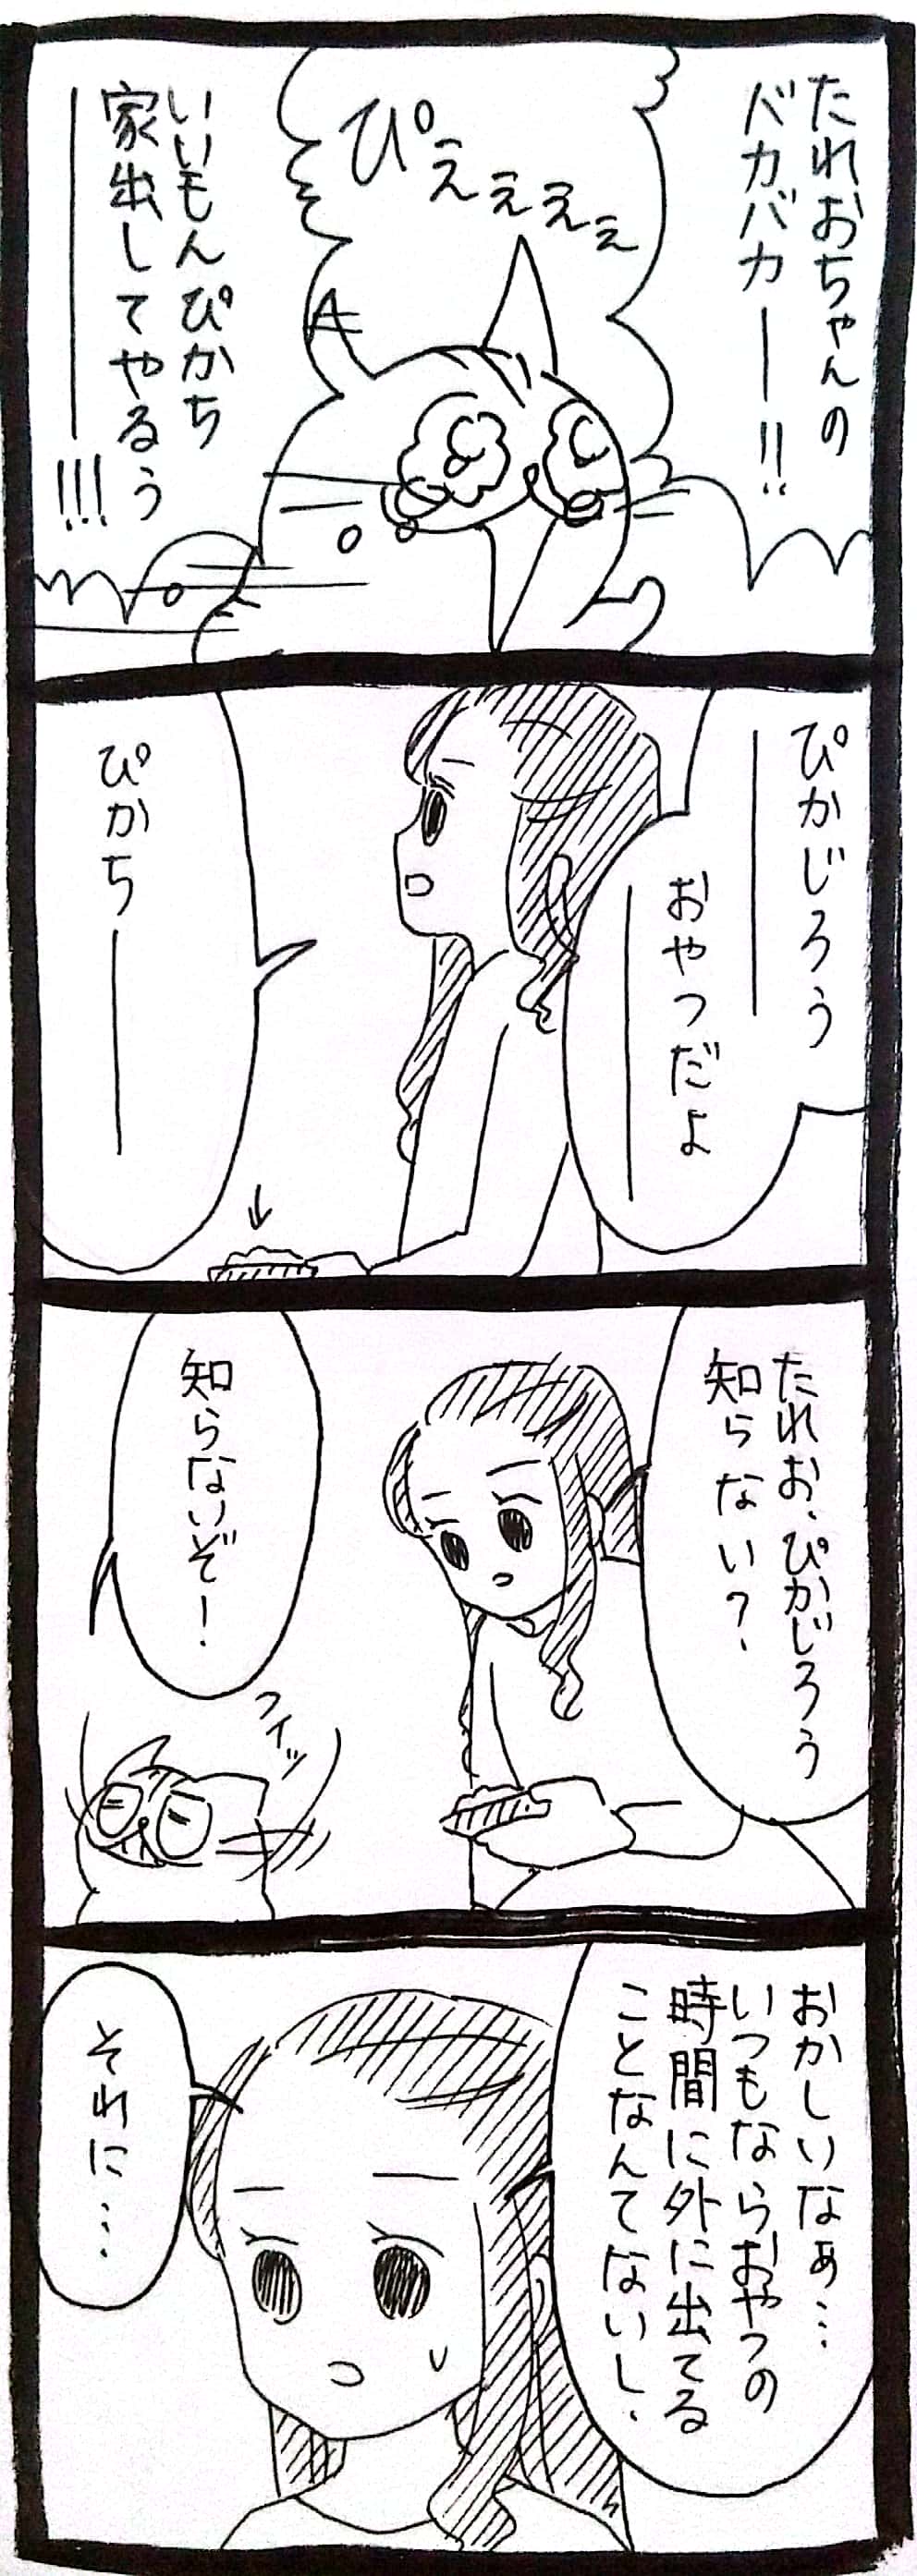 たれおちゃんの
バカバカー!!
ぴえぇぇぇ
いいもんぴかち
家出してやるぅ
ー!!!
ぴかじろう
ー
おやつだよ
ー
ぴかちー
たれお、ぴかじろう
知らない?
知らないぞ!
フイッ
おかしいなぁ…
いつもならおやつの
時間に外に出てる
ことなんてないし、
それに…